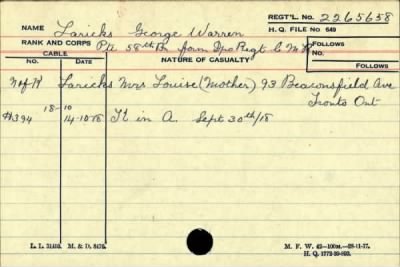 NAME Laricks George Warren REGT'L. No. 2265658
RANK AND CORPS Pte 58th Bn form Dpo Regt C M R H. Q. FILE No 649
CABLE NATURE OF CASUALTY FOLLOWS
No.
NO. DATE FOLLOWS
N of K Laricks Mrs Louise (Mother) 93 Beaconsfield Ave
Tronto Ont
18-10
#394 14-10-18 K in A. Sept 30th/18
L. L. 31410. M. & D. 8476. M. F. W. 42—100m.—28-11-17.
H. Q. 1772-39-893.